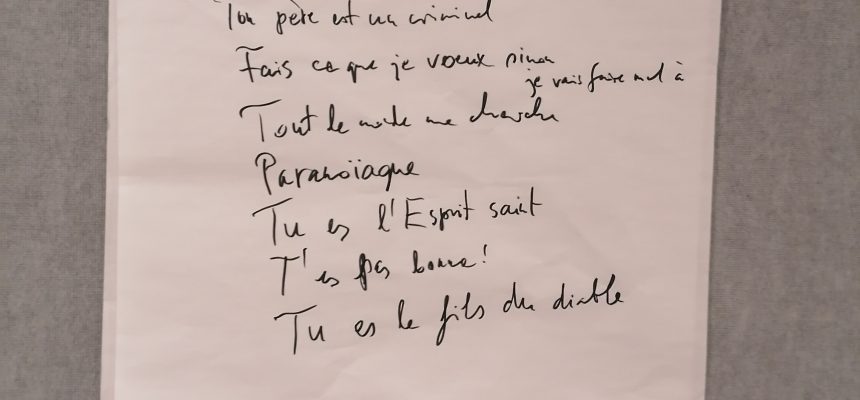 Ton père est un criminel
Fais ce que je voeux sinon
je vais faire mal à
Tout le monde me cherche
Paranoïaque
Tu es l'Esprit saint
T'es pas bonne!
Tu es le fils du diable